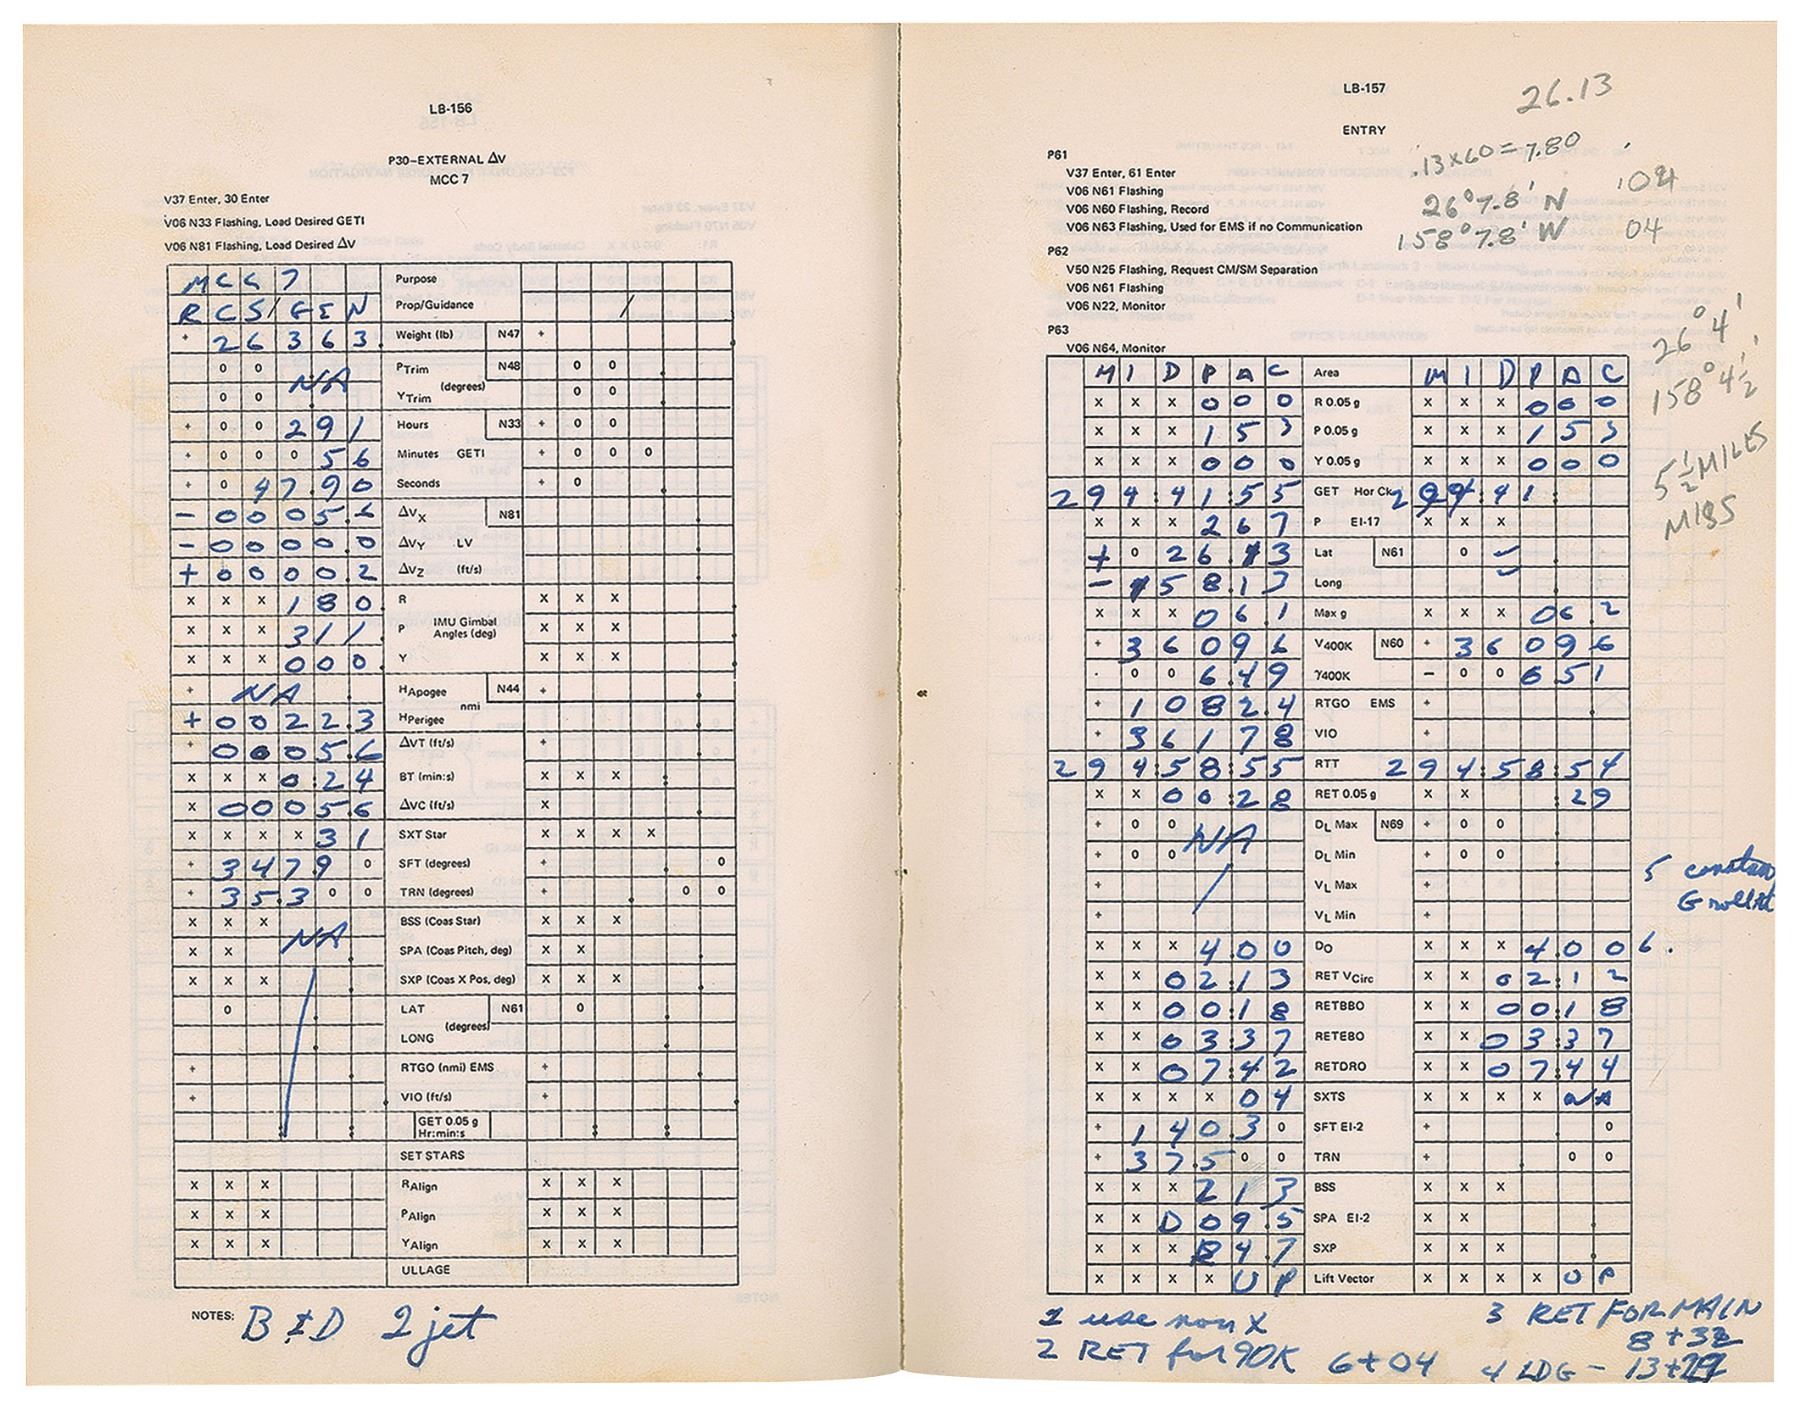 LB-156
P30-EXTERNAL ΔV
MCC 7
V37 Enter, 30 Enter
V06 N33 Flashing, Load Desired GETI
V06 N81 Flashing, Load Desired ΔV
M C C 7 Purpose
R C S / G E N Prop/Guidance /
+ 2 6 3 6 3. Weight (lb) N47 +
0 0 NA PTrim N48 0 0
(degrees)
0 0 YTrim 0 0
+ 0 0 2 9 1 Hours N33 + 0 0
+ 0 0 0 5 6 Minutes GETI + 0 0 0
+ 0 4 7.9 0 Seconds + 0
- 0 0 0 5.6 ΔVX N81
- 0 0 0 0.0 ΔVY LV
+ 0 0 0 0.2 ΔVZ (ft/s)
X X X 1 8 0. R X X X
X X X 3 1 1. P IMU Gimbal Angles (deg) X X X
X X X 0 0 0. Y X X X
+ NA HApogee N44 +
nmi
+ 0 0 2 2.3 HPerigee
+ 0 0 0 5.6 ΔVT (ft/s) +
X X X 0:2 4 BT (min:s) X X X :
X 0 0 0 5.6 ΔVC (ft/s) X
X X X X 3 1 SXT Star X X X X
+ 3 4 7.9 0 SFT (degrees) + 0
+ 3 5.3 0 0 TRN (degrees) + 0 0
X X X BSS (Coas Star) X X X
X X NA SPA (Coas Pitch, deg) X X
X X X SXP (Coas X Pos, deg) X X X
0 LAT N61 0
(degrees)
LONG
+ RTGO (nmi) EMS +
+ VIO (ft/s) +
: : GET 0.05 g Hr:min:s : :
SET STARS
X X X RAlign X X X
X X X PAlign X X X
X X X YAlign X X X
ULLAGE
NOTES: B & D 2 jet
LB-157
26.13
ENTRY
P61
.13x60=7.80
V37 Enter, 61 Enter
V06 N61 Flashing
26°7.8' N
V06 N60 Flashing, Record
V06 N63 Flashing, Used for EMS if no Communication
158°7.8' W 04
P62
V50 N25 Flashing, Request CM/SM Separation
V06 N61 Flashing
V06 N22, Monitor
P63
V06 N64, Monitor
26° 4'
158° 4½'
5½ MILES
M I D P A C Area M I D P A C
X X X 0 0 0 R 0.05 g X X X 0 0 0
X X X 1 5 3 P 0.05 g X X X 1 5 3
X X X 0 0 0 Y 0.05 g X X X 0 0 0
2 9 4:4 1:5 5 GET Hor Ck 2 9 4:4 1:
X X X 2 6 7 P EI-17 X X X
+ 0 2 6.1 3 Lat N61 0 ✓
- 1 5 8.1 3 Long ✓
X X X 0 6.1 Max g X X X 0 6.2
+ 3 6 0 9 6 V400K N60 + 3 6 0 9 6
- 0 0 6.4 9 γ400K - 0 0 6 5 1
+ 1 0 8 2.4 RTGO EMS +
+ 3 6 1 7 8 VIO +
2 9 4:5 8:5 5 RTT 2 9 4:5 8:5 4
X X 0 0:2 8 RET 0.05 g X X 2 9
+ 0 0 NA DL Max N69 + 0 0
+ 0 0 DL Min + 0 0
+ VL Max +
+ VL Min +
5 constan
X X X 4.0 0 DO X X X 4.0 0 6.
X X 0 2:1 3 RET VCirc X X 0 2:1 2
X X 0 0:1 8 RETBBO X X 0 0:1 8
X X 0 3:3 7 RETEBO X X 0 3:3 7
X X 0 7:4 2 RETDRO X X 0 7:4 4
X X X X 0 4 SXTS X X X X NA
+ 1 4 0.3 0 SFT EI-2 + 0
+ 3 7.5 0 0 TRN + 0 0
X X X 2 1 3 BSS X X X
X X D 0 9.5 SPA EI-2 X X
X X X R 4.7 SXP X X X
X X X X U P Lift Vector X X X X U P
1 use non X
2 RET for 90K 6+04
3 RET FOR MAIN
8+32
4 LDG - 13+